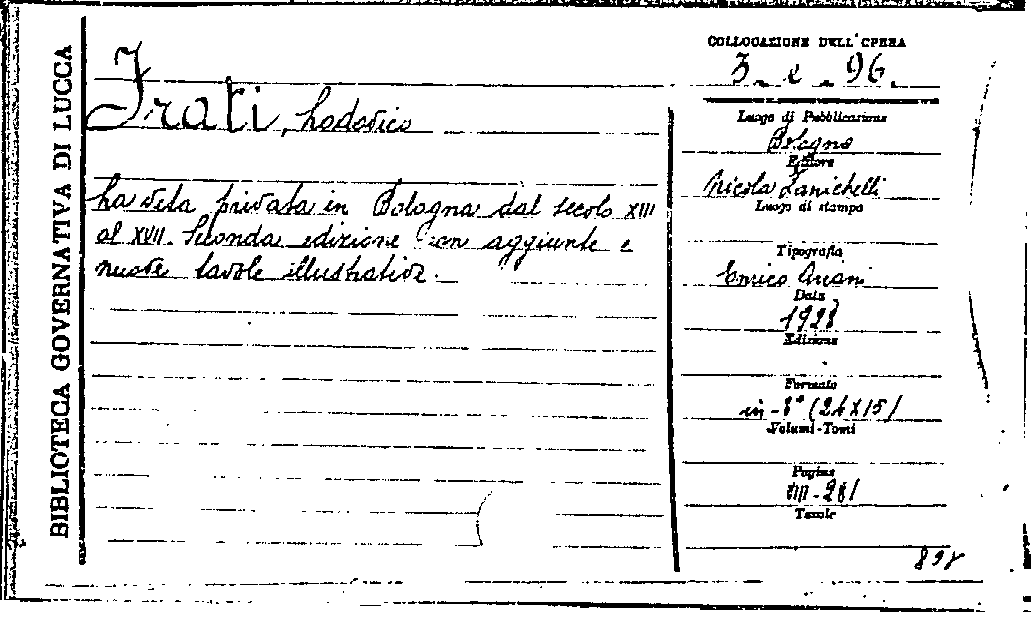 BIBLIOTECA GOVERNATIVA DI LUCCA
Frati, Lodovico
La vita privata in Bologna dal secolo XIII
al XVII. Seconda edizione con aggiunte e
nuove tavole illustrative.
COLLOCAZIONE DELL'OPERA
3. e. 96.
Luogo di Pubblicazione
Bologna
Editore
Nicola Zanichelli
Luogo di stampa
Tipografia
Enrico
Data
1928
Edizione
Formato
in-8° (24X15)
Volumi-Tomi
Pagine
VIII-281
Tavole
898